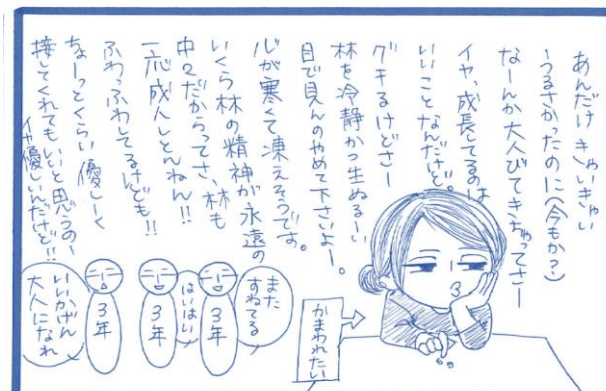 あんだけきゃいきゃい
うるさかったのに(今もか?)
なーんか大人びてきちゃってさー
イヤ、成長してるのは
いいことなんだけど。
グチるけどさー
林を冷静かつ生ぬるーい
目で見んのやめて下さいよー。
心が寒くて凍えそうです。
いくら林の精神が永遠の
中2だからってさ、林も
一応成人しとんねん!!
ふわっふわしてるけども!!
ちょーっとくらい優しーく
接してくれてもいいと思うのー
イヤ優しいんだけど!!
かまわれたい
また
すねてる
3年
はいはい
3年
3年
いいかげん
大人になれ